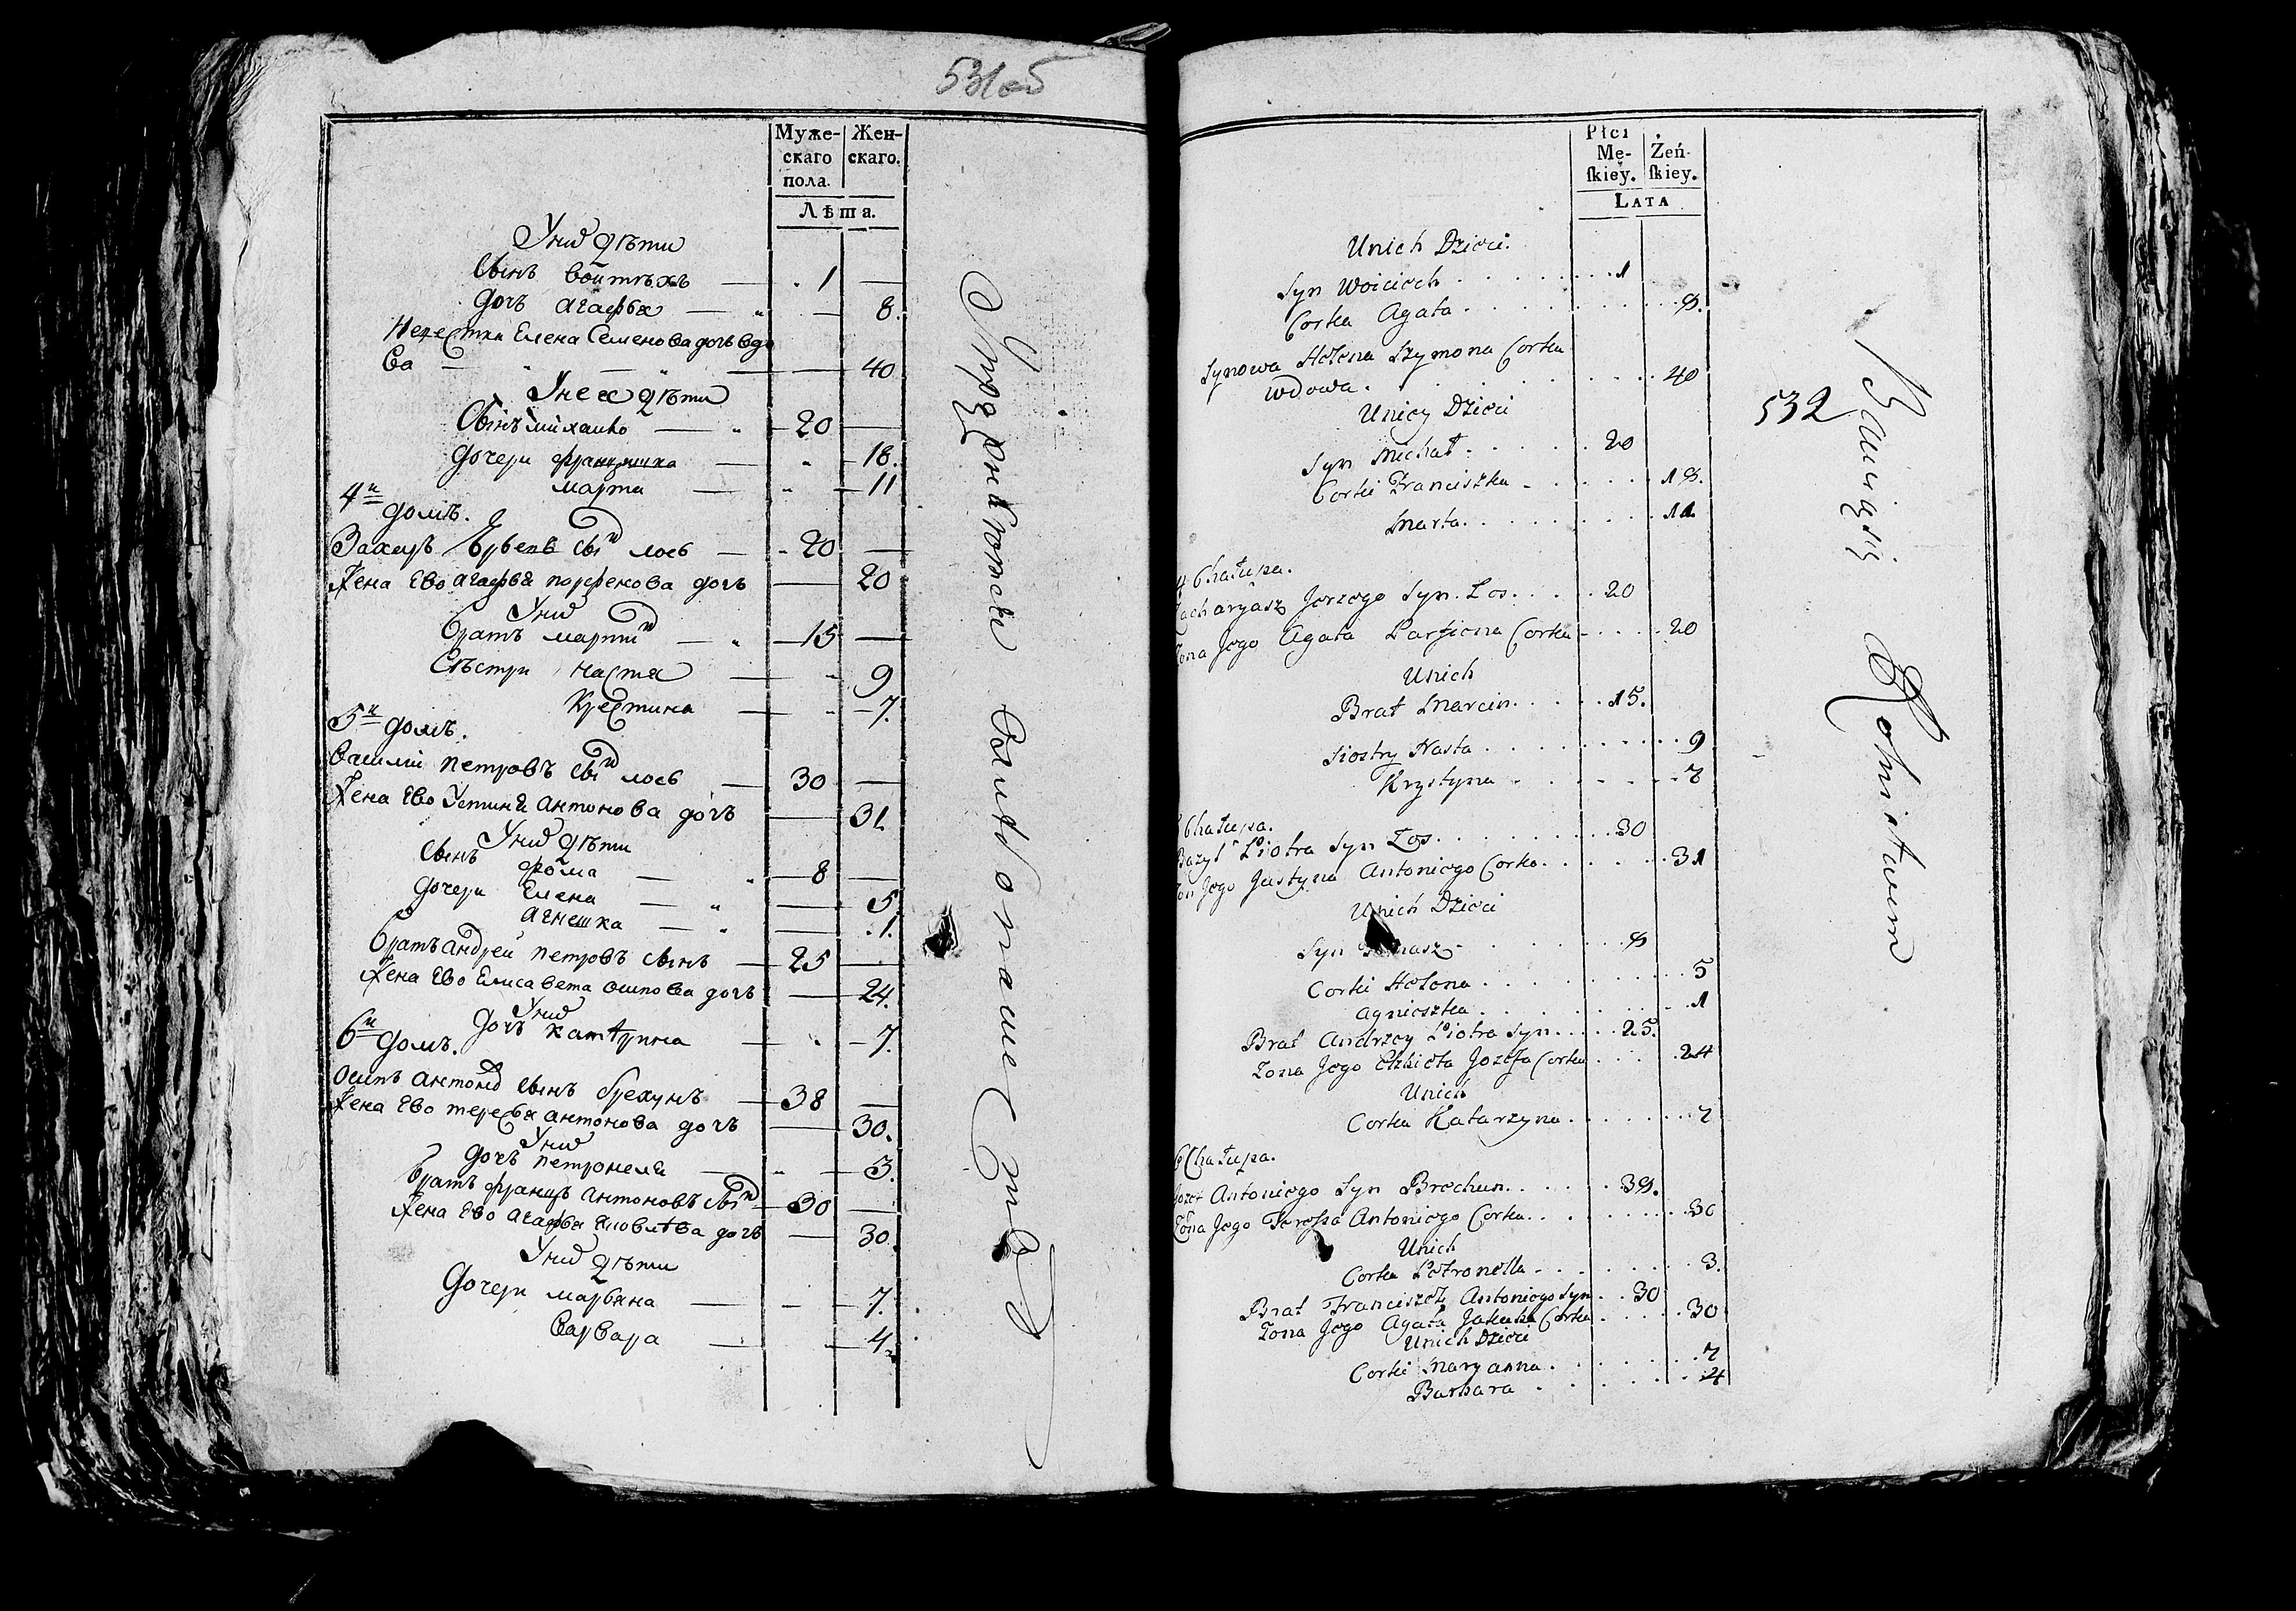 531об
Муже- Жен-
скаго скаго.
пола.
Лѣта.
У них дѣти
Сынъ Войтѣхъ 1
Дочь Агафья 8.
Невестка Елена Семенова дочь вдо
ва 40
У нее дѣти
Сынъ Михайло 20
Дочери Францишка 18.
Марта 11
4й домъ.
Захаръ сын Лось 20
Жена Ево Агафья Парфенова дочь 20
У них
Братъ Мартин 15
Сѣстри Настя 9
Крестина 7.
5й домъ.
Василий Петровъ сын Лось 30
Жена Ево Устинья Антонова дочь 31.
У них дѣти
Сынъ Фома 8
Дочери Елена 5
Агнешка 1.
Братъ Андрей Петровъ сынъ 25
Жена Ево Елисавета Осипова дочь 24.
У них
Дочь Катерина 7.
6й домъ.
Осипъ Антонов сынъ Брехунъ 38
Жена Ево Тересья Антонова дочь 30.
У них
Дочь Петронеля 3.
Братъ Францъ Антоновъ сын 30
Жена Ево Агафья Яковлева дочь 30.
У них дѣти
Дочери Марьяна 7.
Варвара 4.
Płci
Mę- Żeń-
ſkiey. ſkiey.
LATA
Unich Dzieci.
Syn Woiciech 1
Corka Agata 8.
Synowa Helena Szymona Corka
Wdowa 40
Unicy Dzieci
Syn Michał 20
Corki Franciszka 18.
Marta 11
4 Chałupa.
Zacharyasz Jerzego Syn Łos 20
Zona Jego Agata Parfiena Corka 20
Unich
Brat Marcin 15.
Siostry Nasta 9
Krystyna 7
Chałupa.
Bazyl Piotra Syn Łos 30
Zon Jego Justyna Antoniego Corka 31
Unich Dzieci
Syn Tomasz 8
Corki Helena 5
Agnieszka 1
Brat Andrzey Piotra Syn 25.
Zona Jego Elzbieta Jozefa Corka 24
Unich
Corka Katarzyna 7
6 Chałupa.
Jozef Antoniego Syn Brechun 38.
Zona Jego Teressa Antoniego Corka 30
Unich
Corka Petronella 3.
Brat Franciszek Antoniego Syn 30
Zona Jego Agata Jakuba Corka 30
Unich Dzieci
Corki Maryanna 7
Barbara 4
532
Rotmistrem